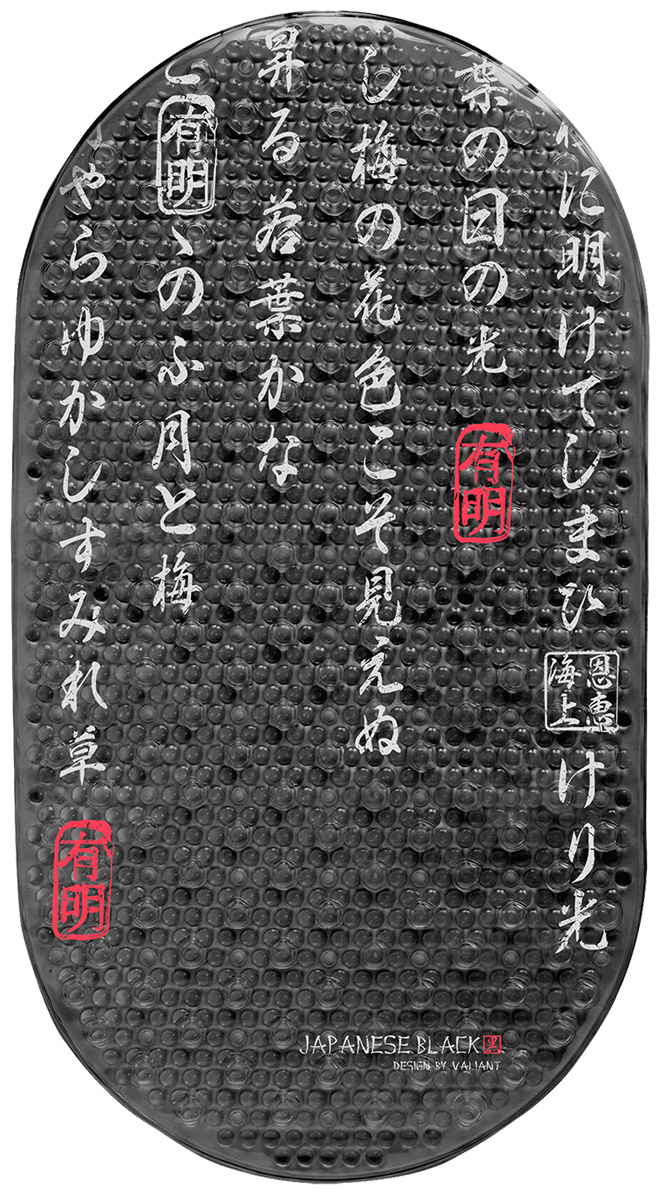 に明けてしまひ
恩惠
海上
けり光
葉の日の光
有明
し梅の花色こそ見えぬ
昇る若葉かな
有明
ゝのふ月と梅
やらゆかしすみれ草
有明
JAPANESE BLACK
DESIGN BY VALIANT